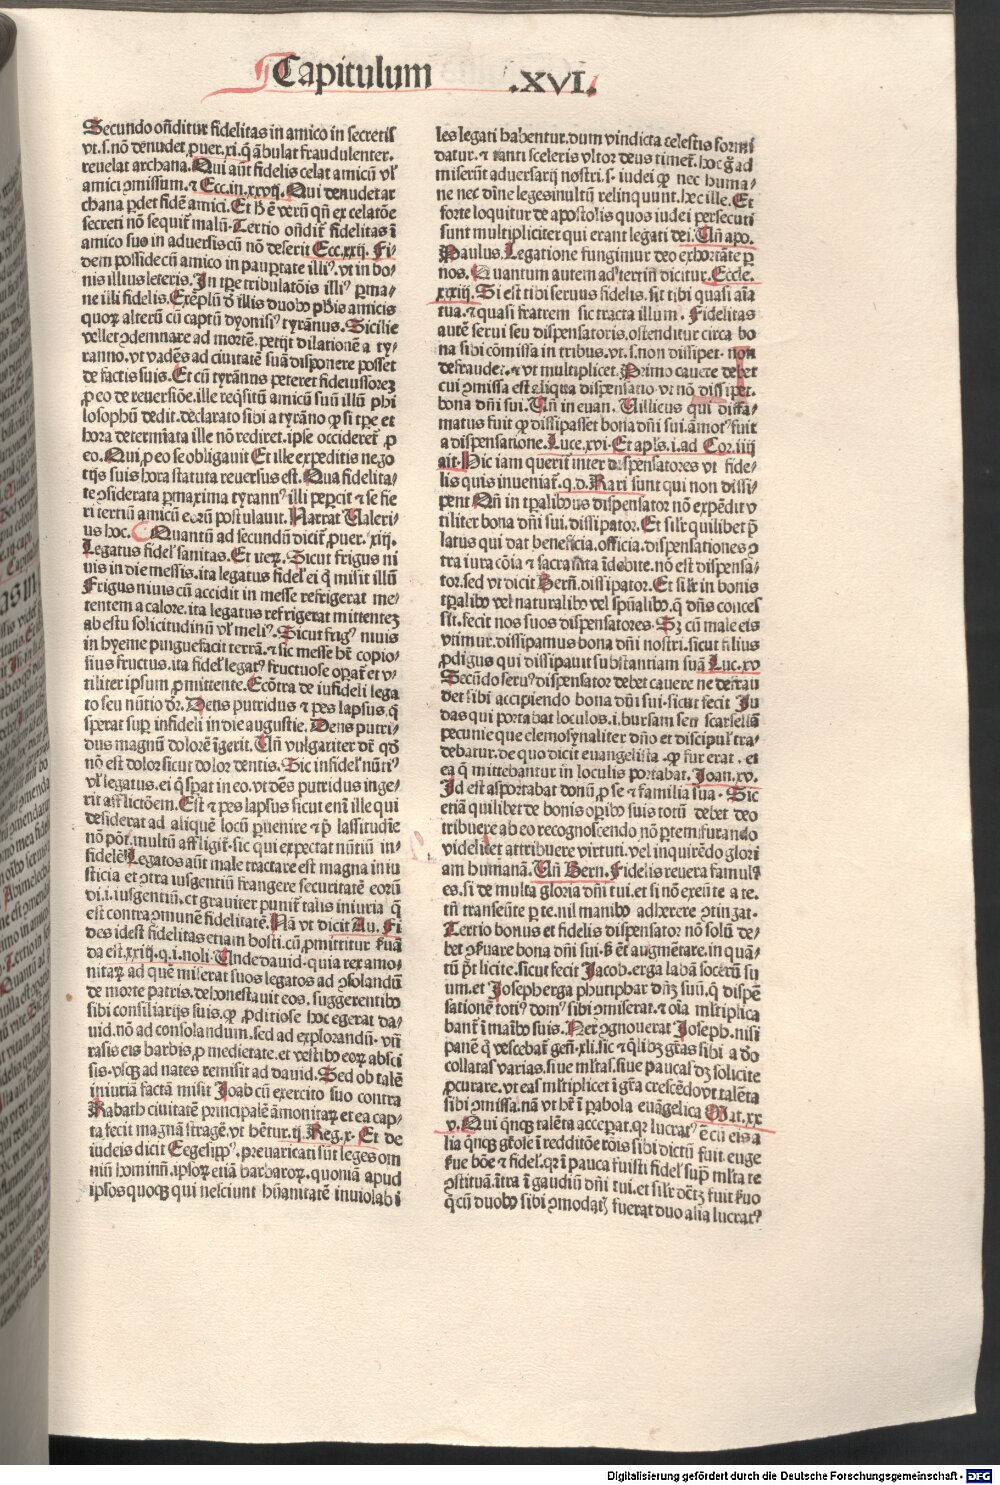 Capitulum .XVI.
Secundo oñditur fidelitas in amico in secretis
vt .s. nō denudet, puer. xi. q̄ ābulat fraudulenter,
reuelat archana. Qui aūt fidelis celat amicū vl'
amici ꝯmissum. ⁊ Ecc. in. xxvij. Qui denudet ar
chana ꝑdet fidē amici. Et h̄ ē verū qñ ex celatōe
secreti nō sequit᷑ malū. Tertio oñdit᷑ fidelitas ī
amico suo in aduersis cū nō deserit Ecc. xxij. Fi-
dem posside cū amico in paupertate illi⁹, vt in bo-
nis illius leteris. In tꝑe tribulatōis illi⁹ ꝑma-
ne illi fidelis. Exēplū d̄ illis duob⁹ ph̄is amicis
quoꝝ alterū cū captū dyonisi⁹ tyrānus. Sicilie
vellet ꝯdemnare ad mortē. petijt dilationē a ty-
ranno. vt vadēs ad ciuitatē suā disponere posset
de factis suis. Et cū tyrānus peteret fideiussoreꝫ
ꝓ eo de reuersiōe. ille reqsitū amicū suū illū phi
losophū dedit. declarato sibi a tyrāno ꝙ si tꝑe et
hora determiata ille nō rediret. ipse occideret᷑ ꝓ
eo. Qui ꝓ eo se obligauit Et ille expeditis nego
tijs suis hora statuta reuersus est. Qua fidelita-
te ꝯsiderata ꝑ maxima tyrann⁹ illi peꝑcit ⁊ se fie
ri tertiū amicū eorū postulauit. Narrat Valeri-
us hoc. Quantū ad secundū dicit᷑ ꝓuer. xiij.
Legatus fidel' sanitas. Et iterꝫ. Sicut frigus ni
uis in die messis. ita legatus fidel' ei q̄ misit illū
Frigus niuis cū accidit in messe refrigerat me-
tentem a calore. ita legatus refrigerat mittenteꝫ
ab estu solicitudinū vl' meli⁹. Sicut frig⁹ niuis
in hyeme pinguefacit terrā. ⁊ sic messe h̄t copio-
sius fructus. ita fidel' legat⁹ fructuose oꝑat᷑ et v-
tiliter ipsum ꝓ mittente. Ecōtra de infideli lega
to seu nūtio dr̄. Dens putridus ⁊ pes lapsus, q̄
sperat suꝑ infideli in die angustie. Dens putri-
dus magnū dolorē īgerit. Uñ vulgariter dr̄ qd̄
nō est dolor sicut dolor dentis. Sic infidel' nūti⁹
vl' legatus. ei q̄ sꝑat in eo. vt dēs putridus inge-
rit afflictōem. Est ⁊ pes lapsus sicut eni᷑ ille qui
desiderat ad aliquē locū ꝑuenire ⁊ ꝓp̄ lassitudīe
nō pōt. multū affligit᷑. sic qui expectat nūtiū in-
fidelē. Legatos aūt male tractare est magna iniu
sticia et ꝯtra iusgentiū frangere securitatē eorū
di. i. iusgentiū. ct grauiter punit᷑ talis iniuria q̄
est contra ꝯmunē fidelitatē. Nā vt dicit Au. Fi
des idest fidelitas etiam hosti. cū ꝓmittitur ẜuā
da est. xxiij. q. i. noli. Vnde dauid. quia rex amo-
nitaꝝ ad quē miserat suos legatos ad ꝯsolandū
de morte patris. dehonestauit eos. suggerentib⁹
sibi consiliarijs suis. ꝙ ꝓditiose hoc egerat da-
uid. nō ad consolandum. sed ad explorandū. vñ
rasis eis barbis ꝓ medietate. et vestib⁹ eoꝝ absci
sis. vsq ad nates remisit ad dauid. Sed ob talē
iniuriā factā misit Joab cū exercito suo contra
Rabath ciuitatē principalē āmonitaꝝ et ea cap-
ta fecit magnā stragē. vt h̄etur. ij. Reg. x. Et de
iudeis dicit Egesipp⁹. preuaricati sūt leges om
niū hominū. ipsoꝝ etiā barbaroꝝ. quoniā apud
ipsos quoqꝫ qui nesciunt hūanitatē inuiolabi
les legati habentur. dum vindicta celestis formi
datur. ⁊ tanti sceleris vltor deus timet᷑. hoc g̊ ad
miserūt aduersarij nostri. s. iudei ꝙ nec huma-
ne nec diuīe leges inultū relinquunt. hec ille. Et
forte loquitur de apostolis quos iudei persecuti
sunt multipliciter qui erant legati dei. Uñ apo.
Paulus. Legatione fungimur deo exhortāte ꝑ
nos. Quantum autem ad tertiū dicitur. Eccle.
xxxiij. Si est tibi seruus fidelis. sit tibi quasi aīa
tua. ⁊ quasi fratrem sic tracta illum. Fidelitas
autē serui seu dispensatoris. ostenditur circa bo
na sibi cōmissa in tribus. vt .s. non dissipet. non
defraudet. ⁊ vt multiplicet. Primo cauere debet
cui ꝯmissa est aliqua dispensatio. vt nō dissipet.
bona dñi sui. Uñ in euan. Villicus qui diffa-
matus fuit ꝙ dissipasset bona dñi sui. amot⁹ fuit
a dispensatione. Luce. xvi. Et apls. i. ad Cor. iiij
ait. Hic iam querit᷑ inter dispensatores vt fide-
lis quis inueniat᷑. q. d. Rari sunt qui non dissi-
pent Qñ in tꝑalibus dispensator nō expēdit v
tiliter bona dñi sui. dissipator. Et silr̄ quilibet p̄
latus qui dat beneficia. officia. dispensationes ꝯ
tra iura cōia ⁊ sacramēta īdebite. nō est dispensa-
tor. sed vt dicit Berñ. dissipator. Et silr̄ in bonis
tꝑalib⁹ vel naturalib⁹ vel sp̄ualib⁹. q̄ dñs conces
sit. fecit nos suos dispensatores. Sꝫ cū male eis
vtimur. dissipamus bona dñi nostri. sicut filius
ꝓdigus qui dissipauit substantiam suā Luc. xv
Secūdo seru⁹ dispensator debet cauere ne defrau
det sibi accipiendo bona dñi sui. sicut fecit Ju
das qui portabat loculos. i. bursam seu scarsellā
pecunie que elemosynaliter dño et discipul' tra-
debatur. de quo dicit euangelista. ꝙ fur erat. et
ea q̄ mittebantur in loculis portabat. Joan. xv.
Id est asportabat domū ꝓ se ⁊ familia sua. Sic
etiā quilibet de bonis oꝑib⁹ suis totū debet deo
tribuere ab eo recognoscendo nō ꝑtem furando
videlicet attribuere virtuti. vel inquirēdo glori
am humanā. Uñ Bern. Fidelis reuera famul⁹
es. si de multa gloria dñi tui. et si nō exeūte a te.
tñ transeūte ꝑ te. nil manib⁹ adherere ꝯtingat.
Tertio bonus et fidelis dispensator nō solū de-
bet ꝯẜuare bona dñi sui. ẜ et augmētare. in quā-
tū pōt licite. sicut fecit Jacob. erga labā socerū su
um. et Joseph erga phutiphar dñꝫ suū. q̄ dispē
sationē toti⁹ dom⁹ sibi ꝯmiserat. ⁊ oīa ml̄tiplica
bant᷑ ī maīb⁹ suis. Nec ꝯgnouerat Joseph. nisi
panē q̄ vescebat᷑ geñ. xli. sic ⁊ qlibꝫ grās sibi a do
collatas varias. siue ml̄tas. siue paucas dꝫ solicite
ꝓcurare. vt eas ml̄tiplicet ī gr̄a crescēdo vt talēta
sibi ꝯmissa. nā vt h̄r ī ꝑabola euāgelica Mat. xx
v. Qui qnqꝫ talēta acceꝑat. qꝫ lucrat⁹ ē cū eis a
lia qnqꝫ gtōle ī redditōe rōis sibi dictū fuit euge
ẜue bōe ⁊ fidel'. qꝛ ī pauca fuisti fidel' suꝑ ml̄ta te
ꝯstituā. ītra ī gaudiū dñi tui. et silr̄ dc̄tꝫ fuit ẜuo
q̄ cū duob⁹ sibi ꝯmodatꝭ fuerat duo alia lucrat⁹
Digitalisierung gefördert durch die Deutsche Forschungsgemeinschaft - DFG